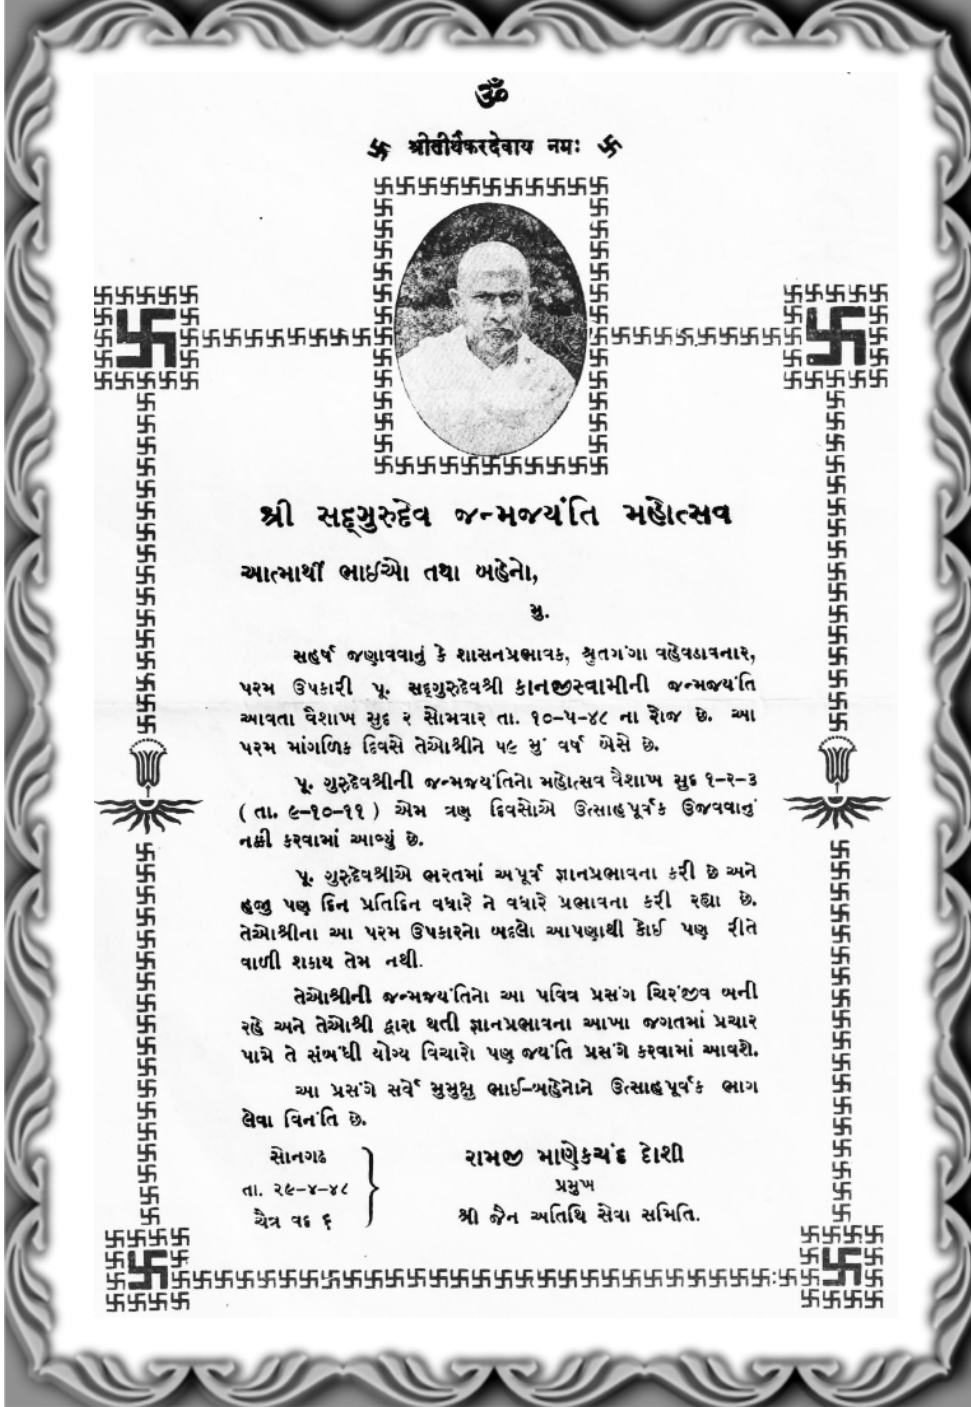 ॐ
श्रीतीर्थंकरदेवाय नमः
શ્રી સદ્‌ગુરુદેવ જન્મજયંતિ મહોત્સવ
આત્માર્થી ભાઈઓ તથા બહેનો,
મુ.
સહર્ષ જણાવવાનું કે શાસનપ્રભાવક, શ્રુતગંગા વહેવડાવનાર,
પરમ ઉપકારી પૂ. સદ્‌ગુરુદેવશ્રી કાનજીસ્વામીની જન્મજયંતિ
આવતા વૈશાખ સુદ ૨ સોમવાર તા. ૧૦-૫-૪૮ ના રોજ છે. આ
પરમ માંગળિક દિવસે તેઓશ્રીને ૫૯ મું વર્ષ બેસે છે.
પૂ. ગુરુદેવશ્રીની જન્મજયંતિનો મહોત્સવ વૈશાખ સુદ ૧-૨-૩
( તા. ૯-૧૦-૧૧ ) એમ ત્રણ દિવસોએ ઉત્સાહપૂર્વક ઉજવવાનું
નક્કી કરવામાં આવ્યું છે.
પૂ. ગુરુદેવશ્રીએ ભરતમાં અપૂર્વ જ્ઞાનપ્રભાવના કરી છે અને
હજી પણ દિન પ્રતિદિન વધારે ને વધારે પ્રભાવના કરી રહ્યા છે.
તેઓશ્રીના આ પરમ ઉપકારનો બદલો આપણાથી કોઈ પણ રીતે
વાળી શકાય તેમ નથી.
તેઓશ્રીની જન્મજયંતિનો આ પવિત્ર પ્રસંગ ચિરંજીવ બની
રહે અને તેઓશ્રી દ્વારા થતી જ્ઞાનપ્રભાવના આખા જગતમાં પ્રચાર
પામે તે સંબંધી યોગ્ય વિચારો પણ જયંતિ પ્રસંગે કરવામાં આવશે.
આ પ્રસંગે સર્વે મુમુક્ષુ ભાઈ-બહેનોને ઉત્સાહપૂર્વક ભાગ
લેવા વિનંતિ છે.
સોનગઢ
તા. ૨૯-૪-૪૮
ચૈત્ર વદ ૬
રામજી માણેકચંદ દોશી
પ્રમુખ
શ્રી જૈન અતિથિ સેવા સમિતિ.